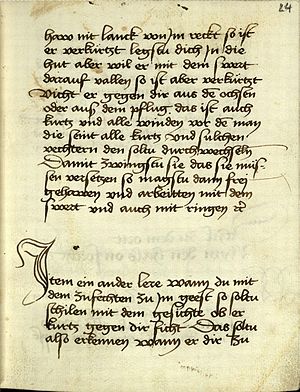 24
haw nit lanck von Im reckt so ist
er verkürtzt legstu dich In die
hut aber wil er mit dem swert
darauf vallen so ist aber verkürtzt
Vicht er gegen dir aus de ochsen
oder aus dem pflug das ist auch
kurtz vnd alle winden vor de man
die seint alle kurtz vnd sülichen
vechtern den soltu durch wechseln
Damit zwingstu sie das sie müs
sen versetzen so magstu dann frei
gehawen vnd arbeitten mit dem
swert vnd auch mit ringen etc
Item ein ander lere wann du mit
dem zufechten zu Im geest so soltu
schilen mit dem gesichte ob er
kurtz gegen dir ficht Das soltu
also erkennen wann er dir zu